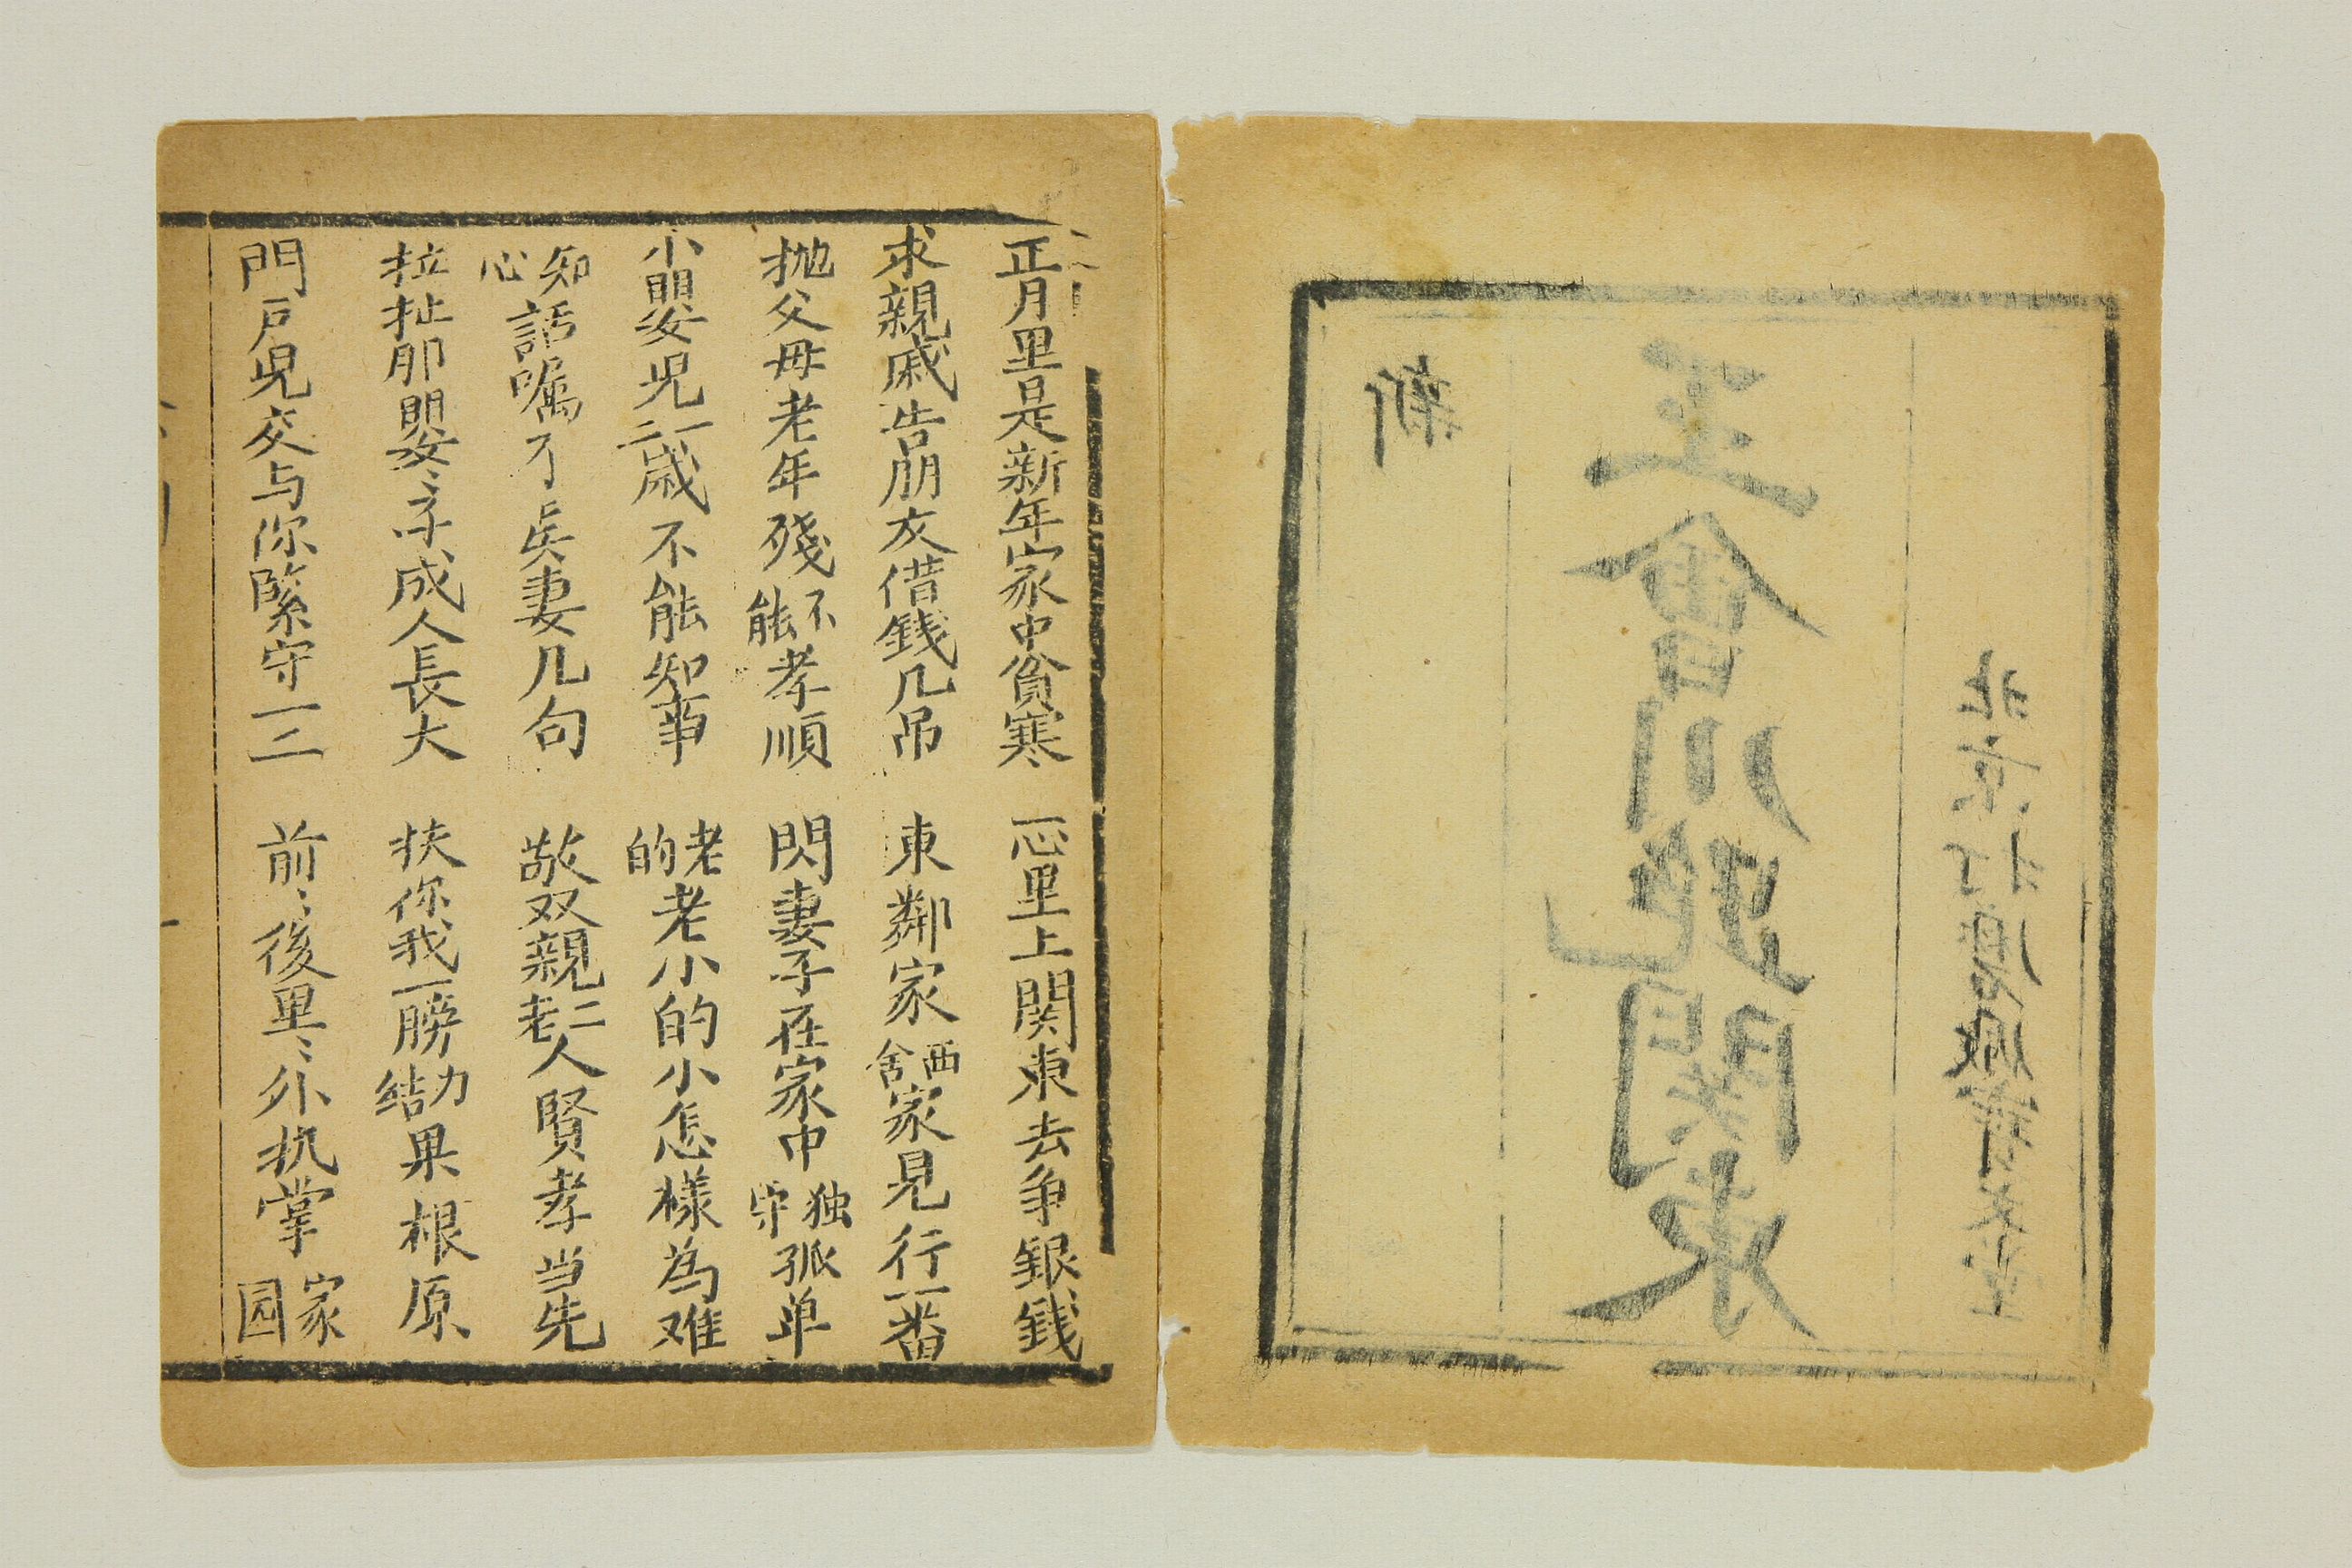 北京打磨厰文堂
王會川跑關東
新
正月里是新年家中貧寒 一心里上関東去争銀錢
求親戚告朋友借錢几吊 東鄰家西舍家見行一番
抛父母老年殘不能孝順 閃妻子在家中独守孤单
小嬰児一二歲不能知事 老的老小的小怎樣為难
知心話嘱了吳妻几句 敬双親二老人賢孝当先
拉扯那嬰〻子成人長大 扶你我一膀力结果根原
門戸児交与你緊守一二 前〻後里〻外执掌家园